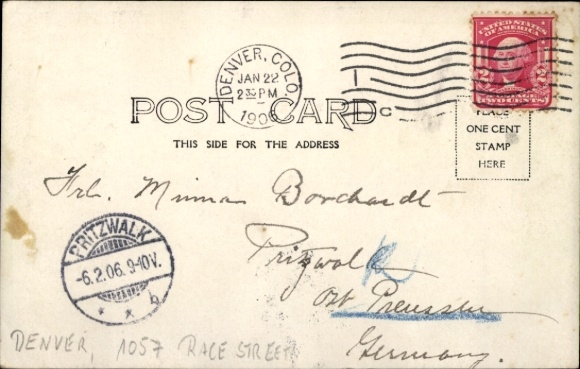 DENVER, COLO.
JAN 22
2 30 PM
1906
UNITED STATES
OF AMERICA
2 2
TWO CENTS
POST CARD
THIS SIDE FOR THE ADDRESS
C
PLACE
ONE CENT
STAMP
HERE
Frl. Minna Borchardt
Pritzwalk
Ost Preussen
Germany.
PRITZWALK
-6.2.06. 9-10V.
* * b
DENVER, 1057 RACE STREET